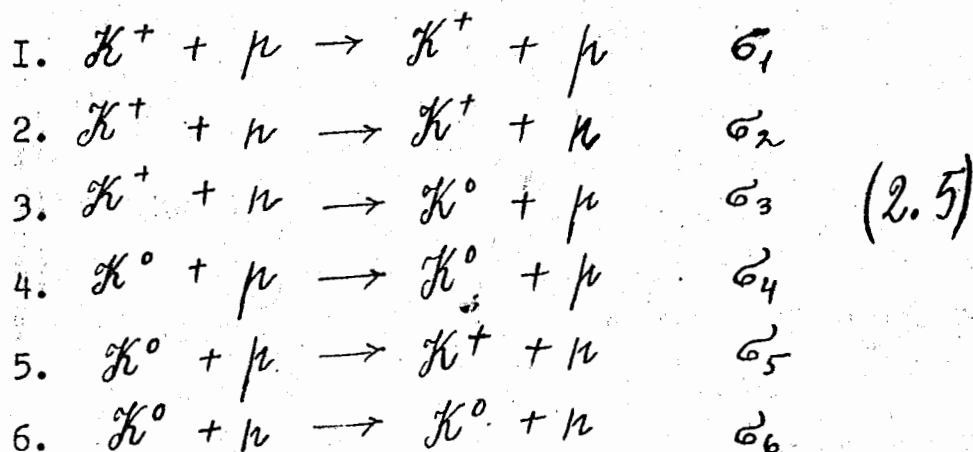 I. K⁺ + p → K⁺ + p σ₁
2. K⁺ + n → K⁺ + n σ₂
3. K⁺ + n → K⁰ + p σ₃ (2.5)
4. K⁰ + p → K⁰ + p σ₄
5. K⁰ + p → K⁺ + n σ₅
6. K⁰ + n → K⁰ + n σ₆